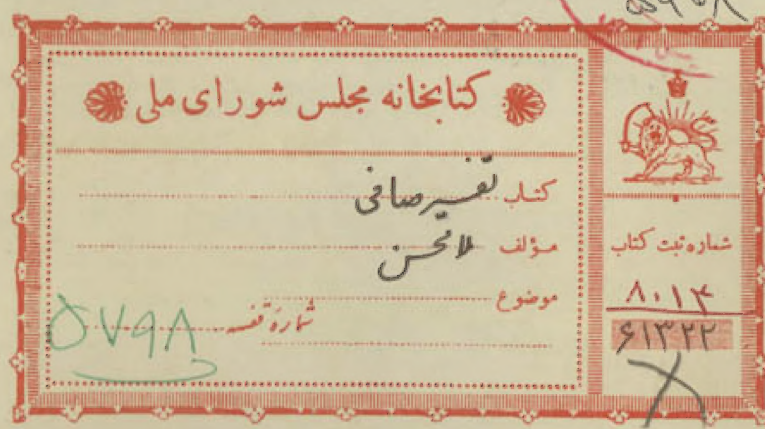 کتابخانه مجلس شورای ملی
کتاب تفسیر صافی
مؤلف ملا محسن
موضوع
شمارهٔ قفسه
۵۷۹۸
شماره ثبت کتاب
۸۰۱۴
۶۱۳۲۲